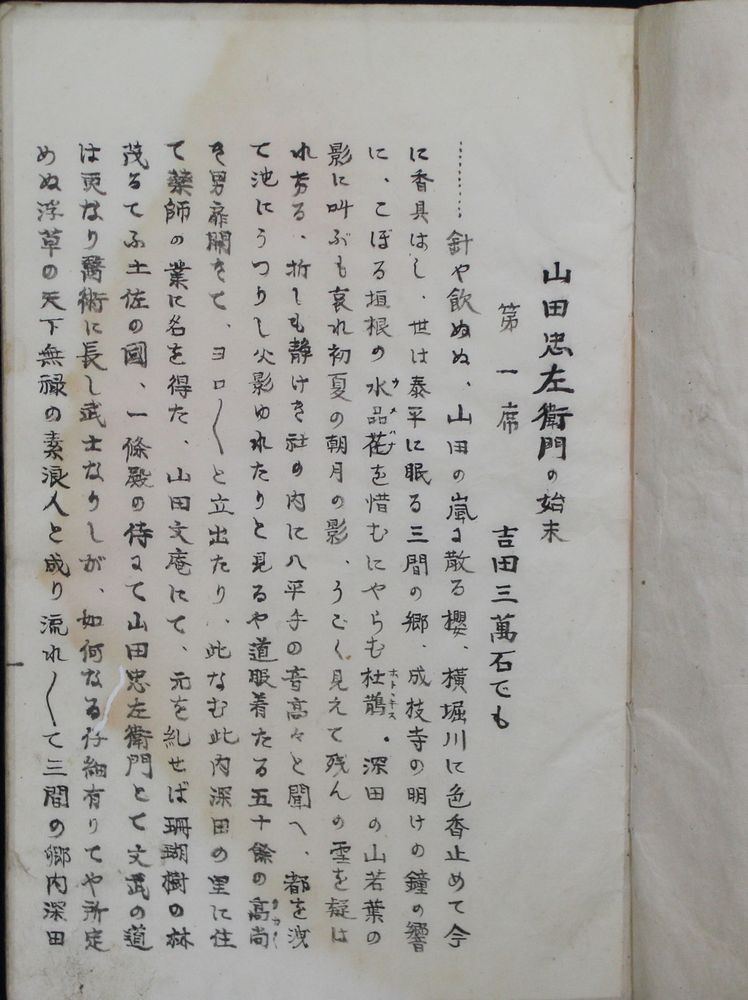 山田忠左衛門の始末
第一席　吉田三萬石でも
………針や飲ぬぬ、山田の嵐に散る櫻、横堀川に色香止めて今
に香具はし、世は泰平に眠る三間の郷、成技寺の明けの鐘の響
に、こぼる垣根の水晶花を惜むにやらむ杜鵑。深田の山若葉の
影に叫ぶも哀れ初夏の朝月の影、うごく見えて残んの雪を疑は
れ労る、折しも静けき社の内に八平手の音高々と聞へ、都を洩
て池にうつりし火影ゆれたりと見るや道服着たる五十餘の高尚
き男扉開きて、ヨロ〱と立出たり、此なむ此内深田の里に住
て藥師の業に名を得た、山田文庵にて、元を糺せば珊瑚樹の林
茂るてふ土佐の國、一條殿の侍にて山田忠左衛門とて文武の道
は更なり醫術に長し武士なりしが、如何なる仔細有りてや所定
めぬ浮草の天下無禄の素浪人と成り流れ〱て三間の郷内深田